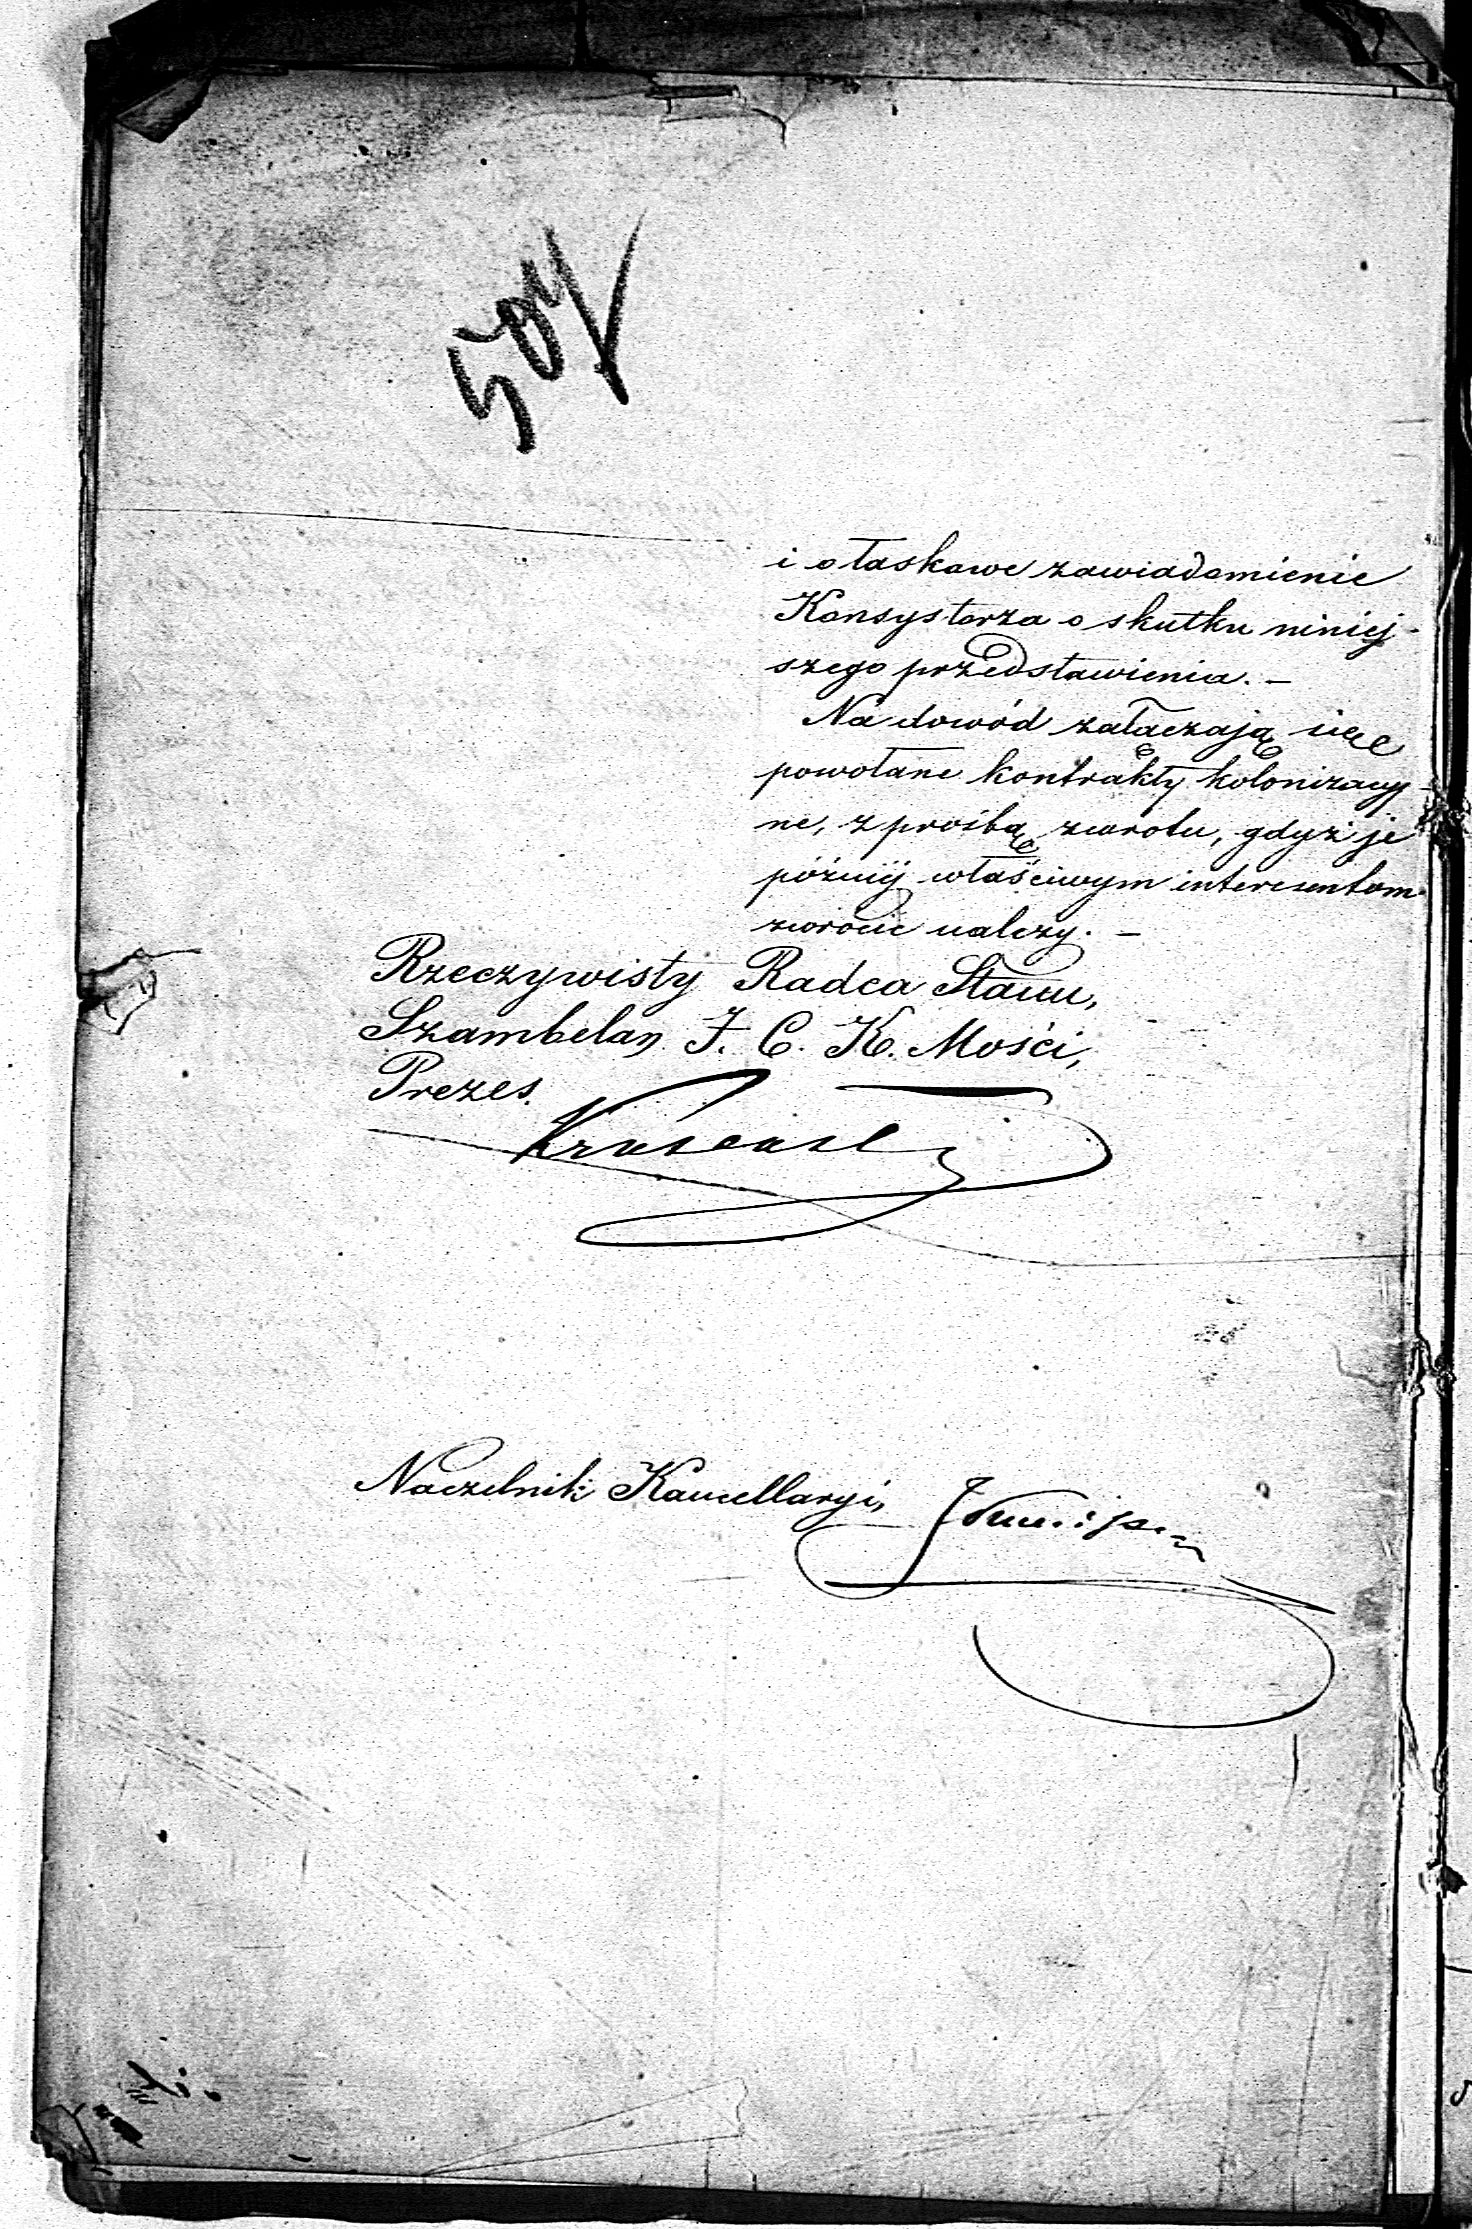 504
i o łaskawe zawiadomienie
Konsystorza o skutku niniej-
szego przedstawienia. –
Na dowód załączają się
powołane kontrakty kolonizacyj-
ne, z prośbą zwrotu, gdyż je
później właściwym interesentom
zwrócić należy. –
Rzeczywisty Radca Stanu,
Szambelan J. C. K. Mości,
Prezes.
Naczelnik Kancellaryi,